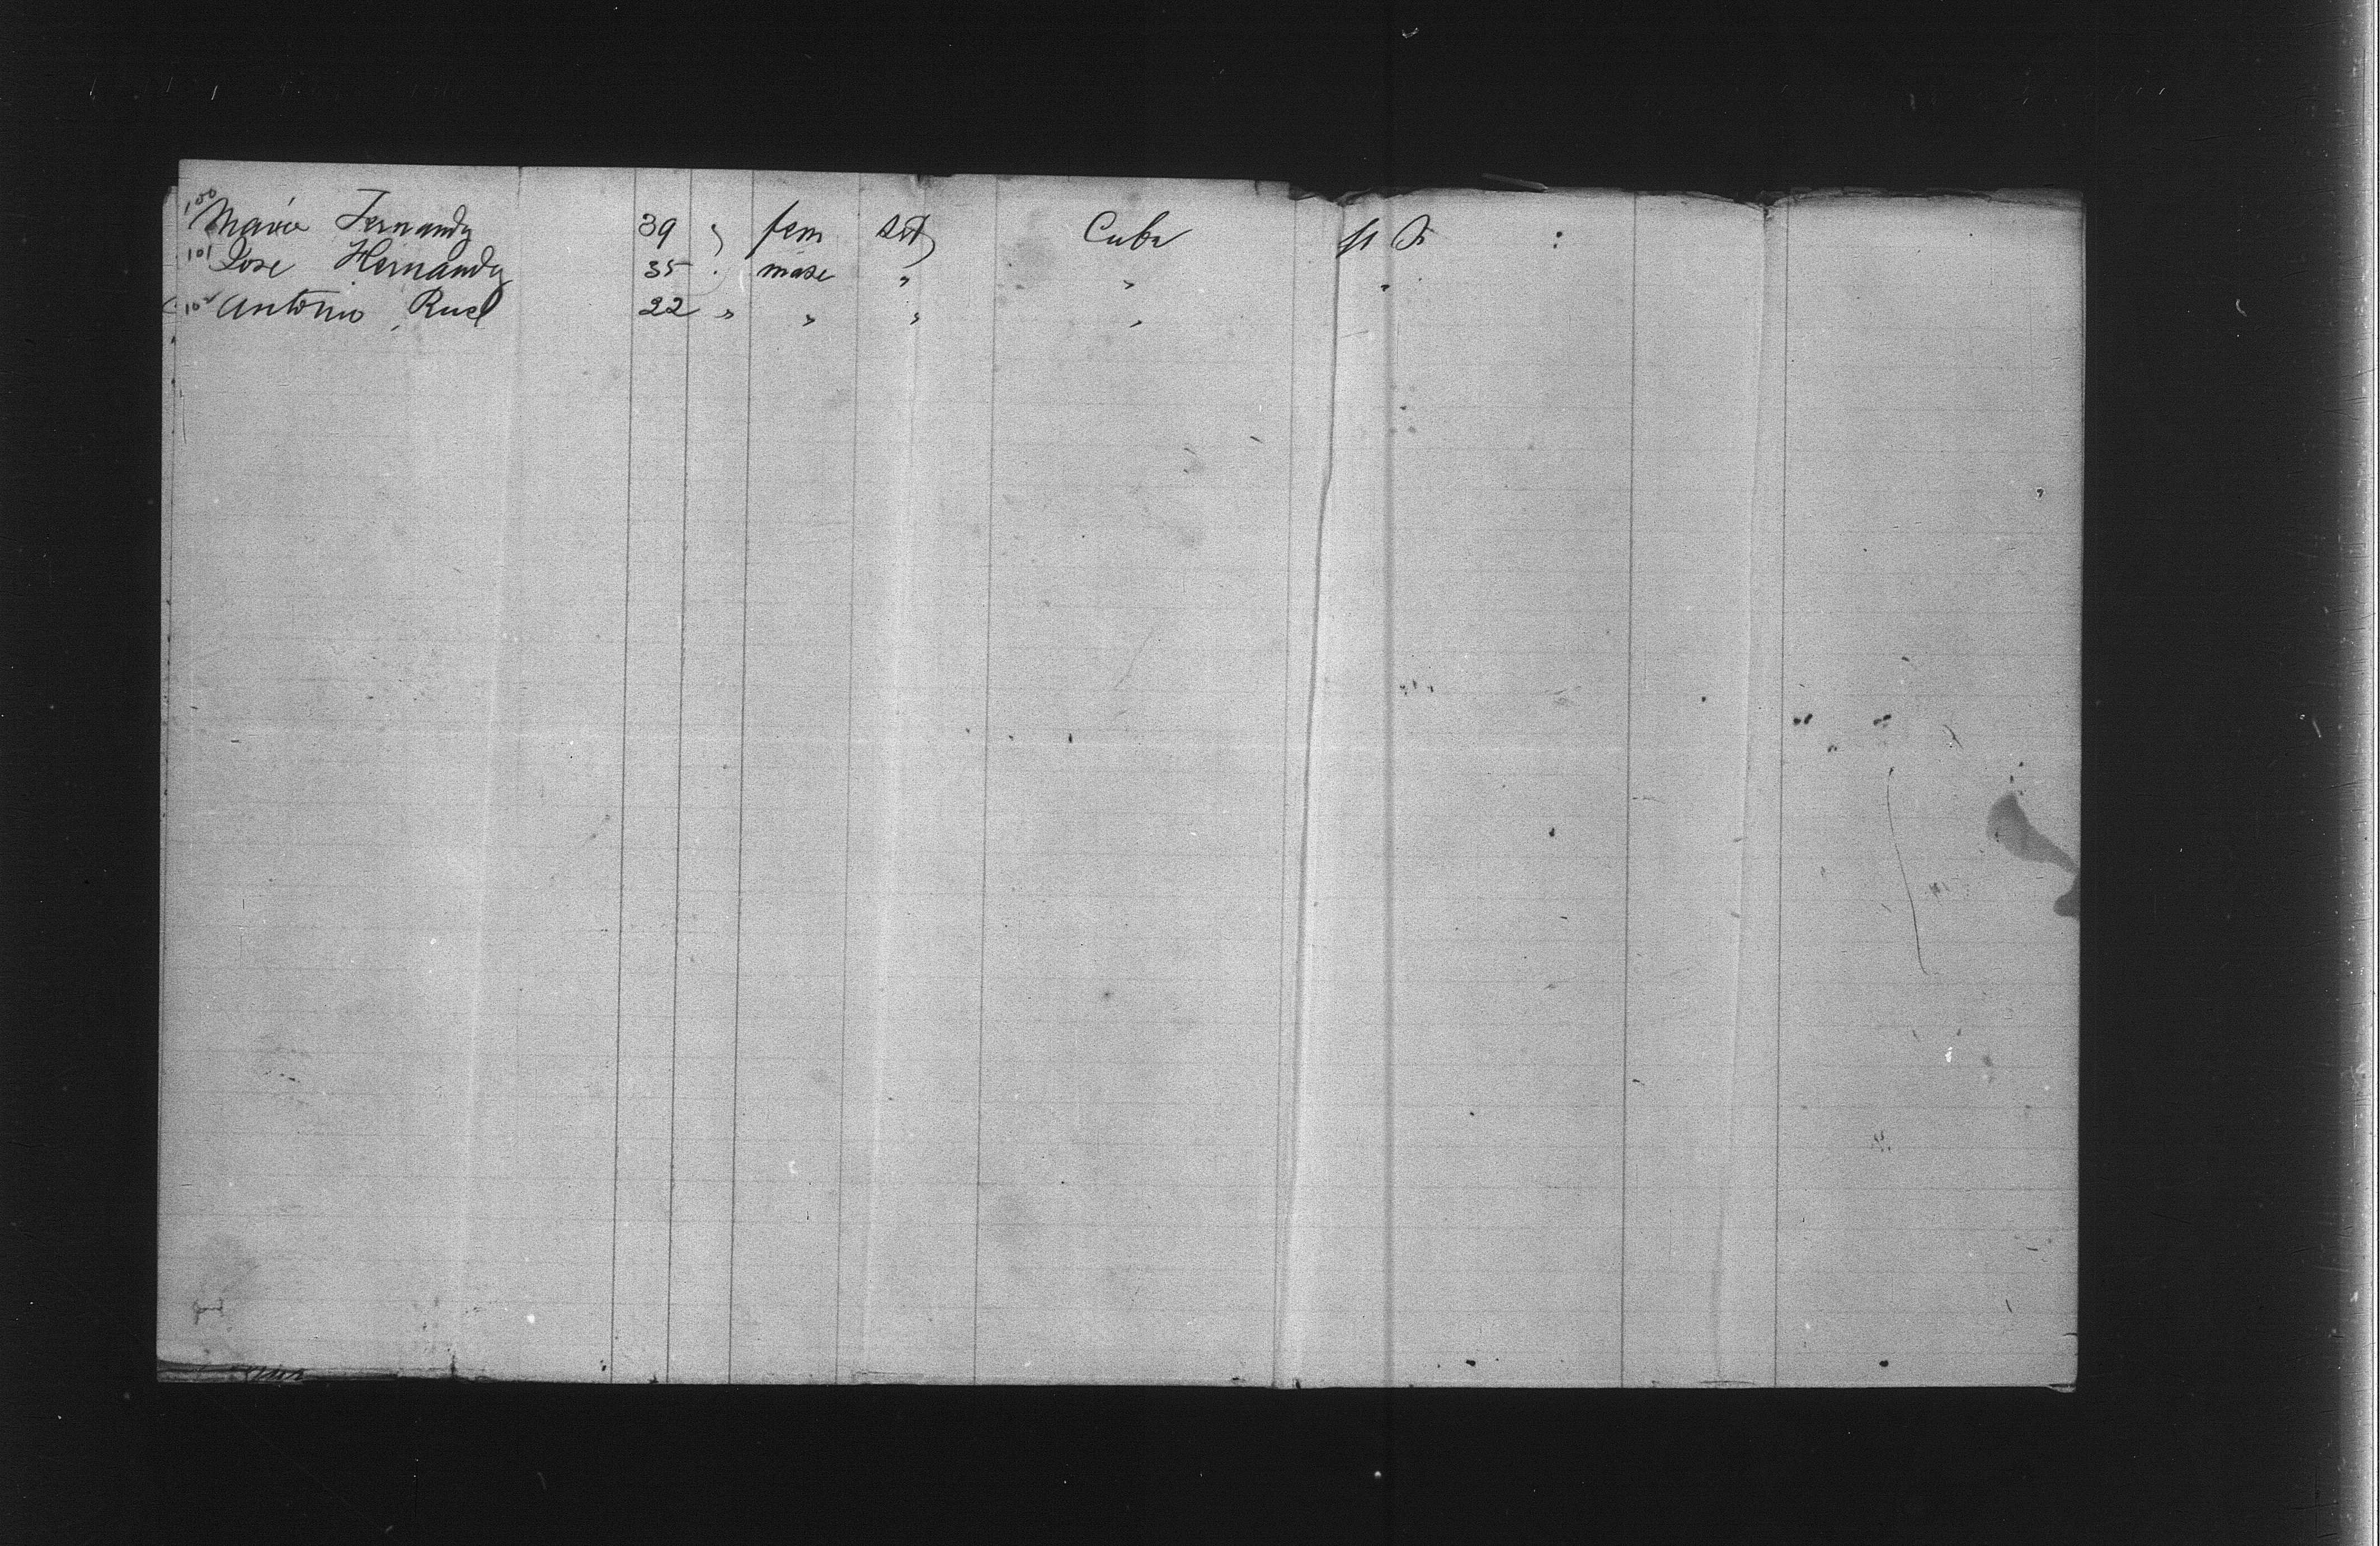 100 Maria Fernandz 39 " fem Cuba
101 Jose Hernandz 35 " masc " "
102 Antonio Rusl 22 " " " "